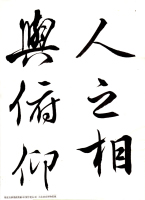 人之相
與俯仰